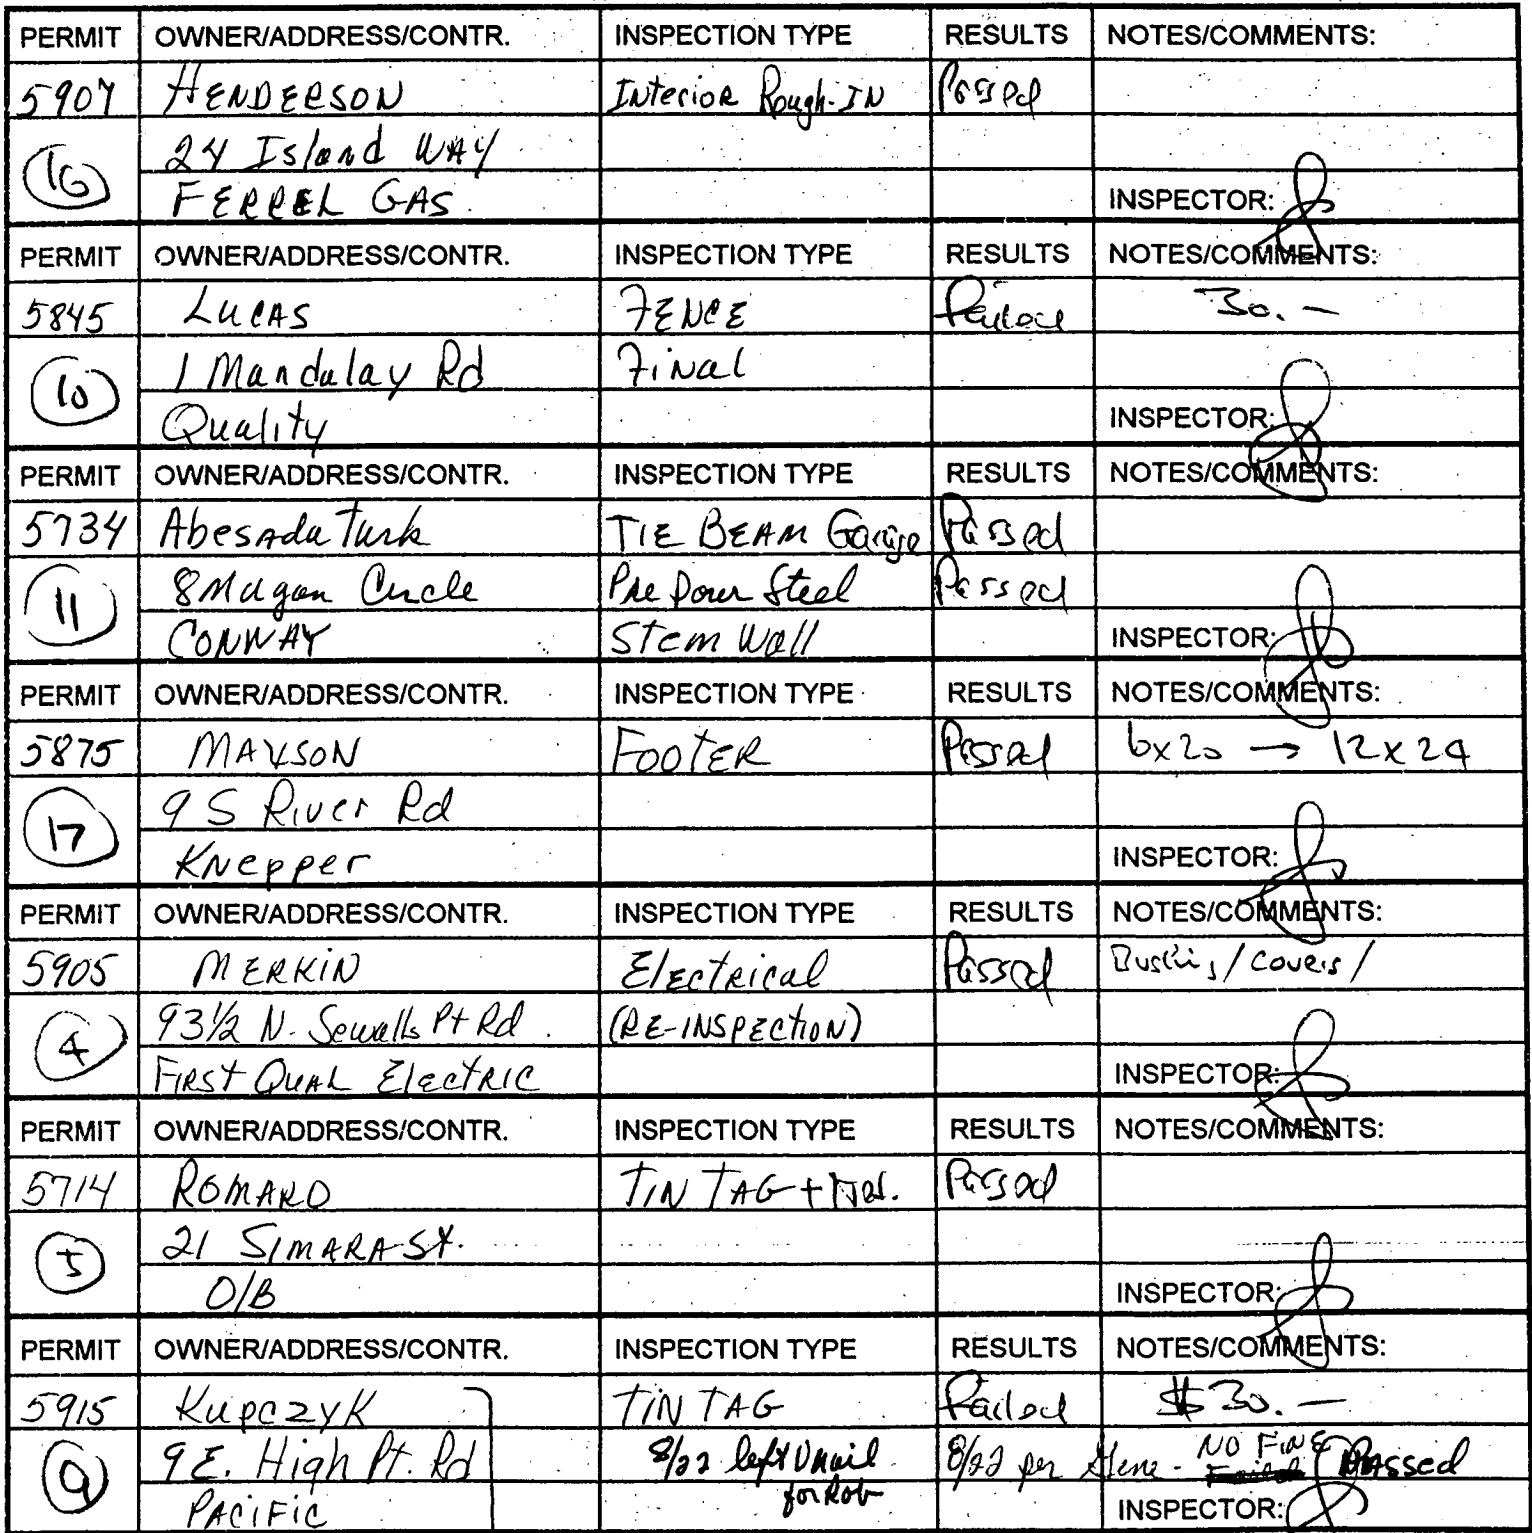 PERMIT OWNER/ADDRESS/CONTR. INSPECTION TYPE RESULTS NOTES/COMMENTS:
5907 HENDERSON INterioR Rough-IN Passed
24 Island WAY
16
FERREL GAS INSPECTOR:
PERMIT OWNER/ADDRESS/CONTR. INSPECTION TYPE RESULTS NOTES/COMMENTS:
5845 LUCAS FENCE Failed 30.—
1 Mandalay Rd Final
10
Quality INSPECTOR:
PERMIT OWNER/ADDRESS/CONTR. INSPECTION TYPE RESULTS NOTES/COMMENTS:
5734 Abesada Turk TIE BEAM Garage Passed
8 Magon Circle Pre pour Steel Passed
11
CONWAY Stem Wall INSPECTOR:
PERMIT OWNER/ADDRESS/CONTR. INSPECTION TYPE RESULTS NOTES/COMMENTS:
5875 FOOTER Passed 6x20 → 12x24
9 S River Rd
17
KNepper INSPECTOR:
PERMIT OWNER/ADDRESS/CONTR. INSPECTION TYPE RESULTS NOTES/COMMENTS:
5905 MERKIN Electrical Passed / Covers /
93½ N. Sewalls Pt Rd. (RE-INSPECTION)
4
FIRST QUAL Electric INSPECTOR:
PERMIT OWNER/ADDRESS/CONTR. INSPECTION TYPE RESULTS NOTES/COMMENTS:
5714 ROMARO TIN TAG + Passed
21 SIMARA St.
5
O/B INSPECTOR:
PERMIT OWNER/ADDRESS/CONTR. INSPECTION TYPE RESULTS NOTES/COMMENTS:
5915 Kupczyk TIN TAG Failed $30.—
9 E. High Pt. Rd 8/22 left Vmail 8/22 per Gene - NO FINE Passed
9 for Rob
PACIFIC INSPECTOR: